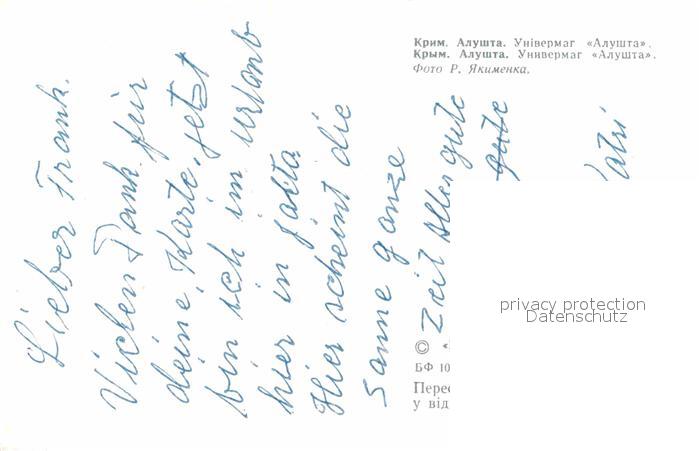 Lieber Frank.
Vielen Dank für
deine Karte, jetzt
bin ich im Urlaub
hier in Jalta
Hier scheint die
Sanne ganze
Zeit Alles gute
gute
Крим. Алушта. Універмаг «Алушта».
Крым. Алушта. Универмаг «Алушта».
Фото Р. Якименка.
privacy protection
Datenschutz
©
БФ 10
у від